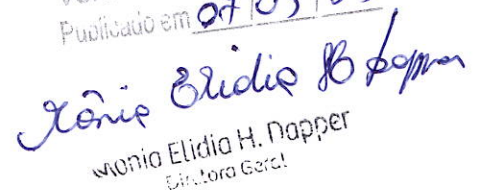 Publicado em 07/03/
Mônia Elidia H Dapper
Monia Elidia H. Dapper
Diretora Geral